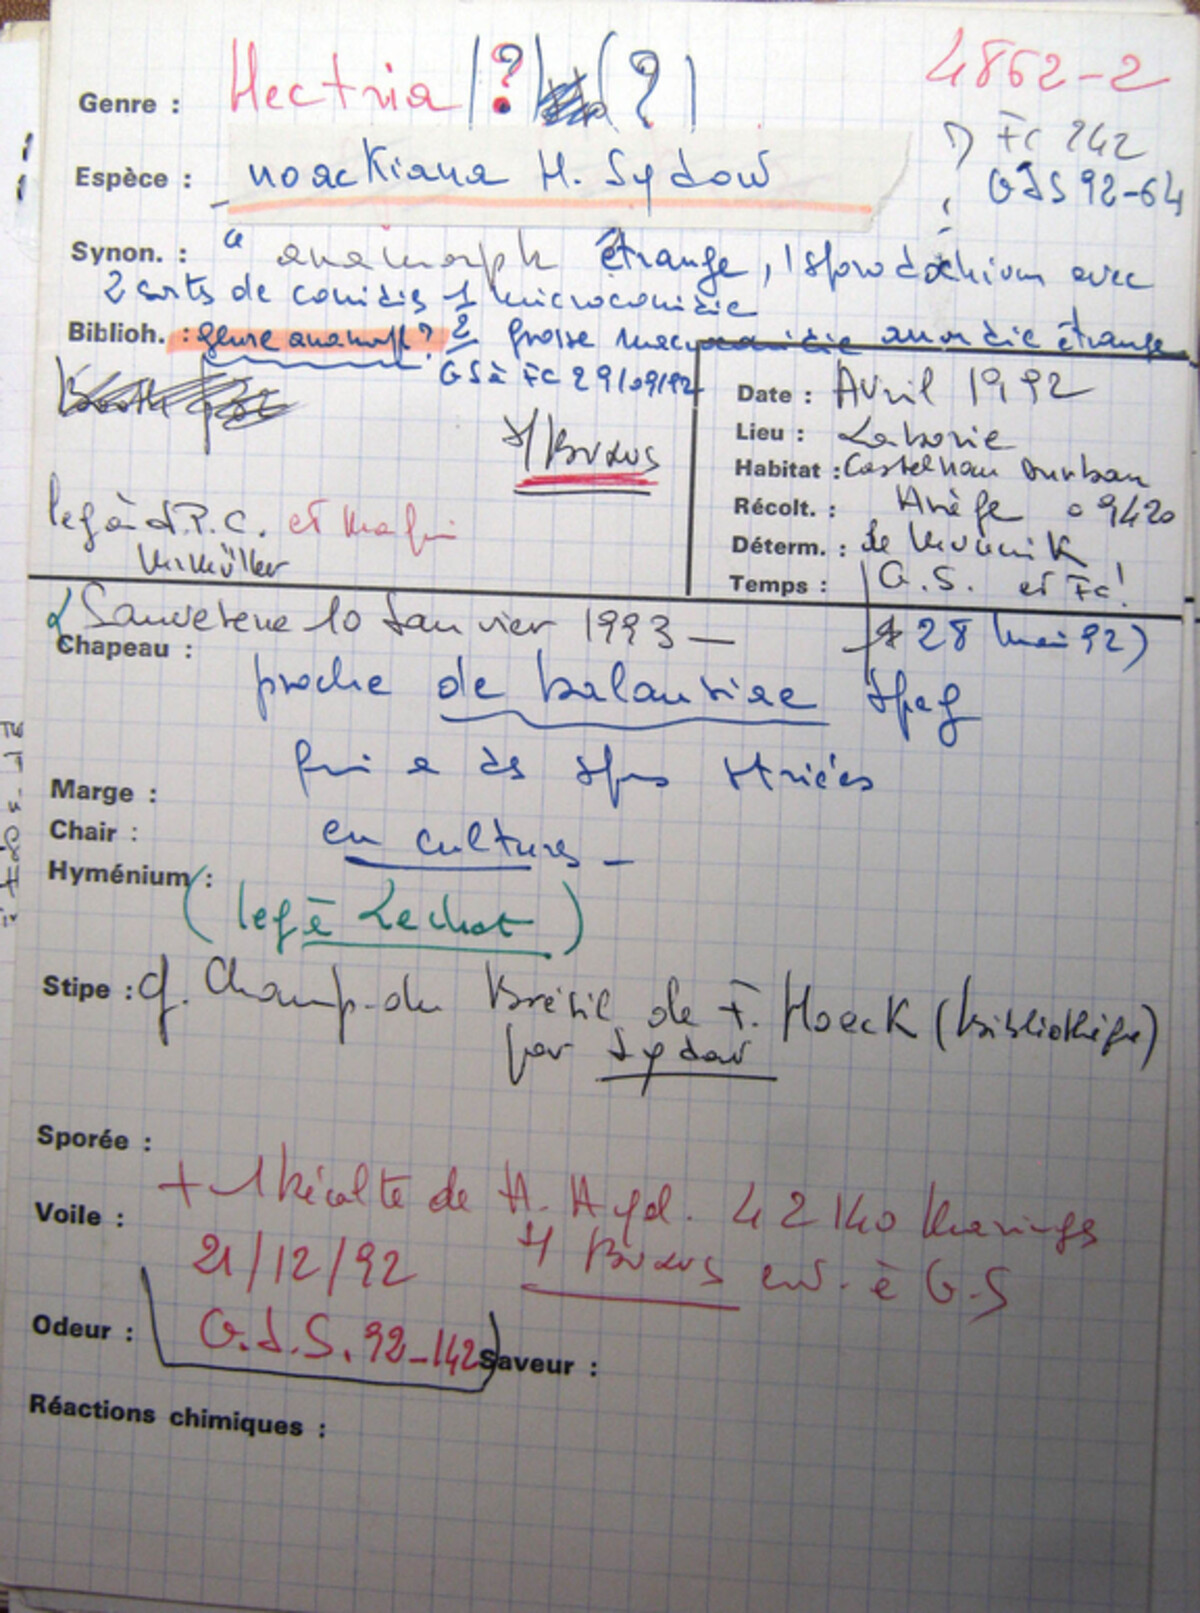 4862-2
Genre : Nectria (?) (?)
1) FC 242
Espèce : noackiana H. Sydow
GJS 92-64
Synon. : " anamorph étrange, 1 sporodochium avec
2 sorts de conidies 1 microconidie
Biblioh. : genre anamorph? 2 grosse étrange
GS à FC 29/09/92
s/Buxus
Date : Avril 1992
Lieu : Laborie
Habitat : Castelnau Durban
Récolt. : Ariège 09420
Déterm. :
Temps : G.S. et FC!
leg à J.P.C. et
(Samuels 10 Janvier 1993 —
28 mai 92)
Chapeau : proche de balansiae Speg
qui a des spores striées
Marge :
Chair : en cultures –
Hyménium :
(leg à Lechat)
Stipe : cf. Champ. du Brésil de F. Noack (bibliothèque)
par Sydow
Sporée :
+ 1 Récolte de A. Ayel. 42140
Voile :
21/12/92 s/ Buxus env. à G.S
Odeur : G.J.S. 92-142
Saveur :
Réactions chimiques :